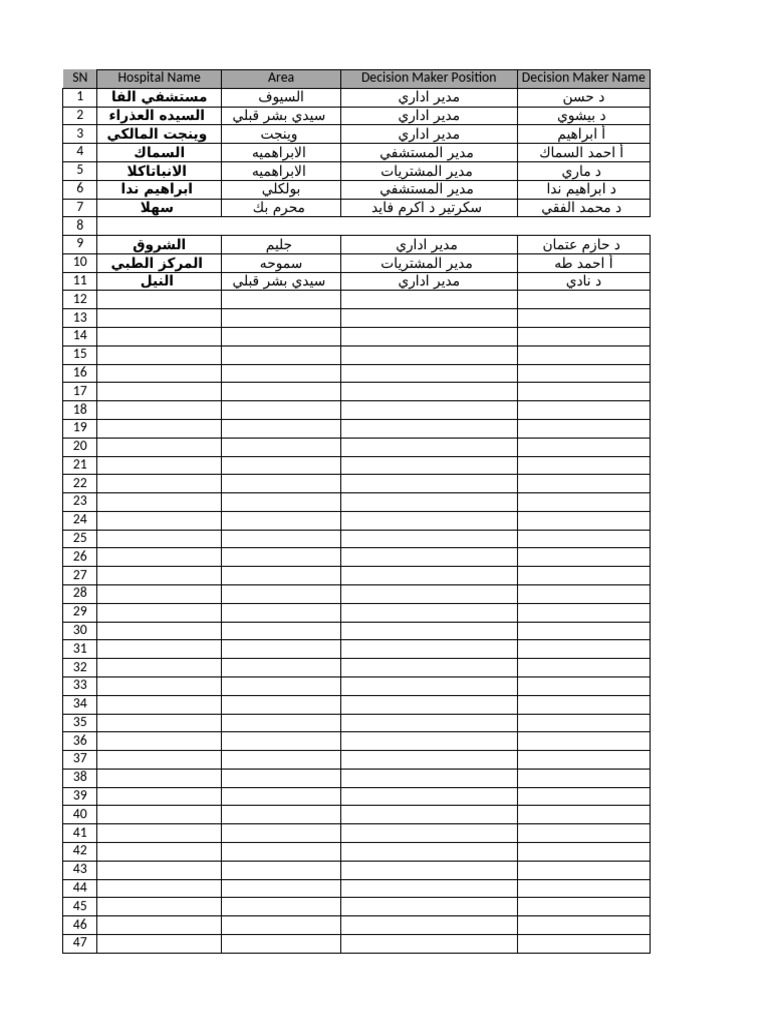 SN Hospital Name Area Decision Maker Position Decision Maker Name
1 مستشفي الفا السيوف مدير اداري د حسن
2 السيده العذراء سيدي بشر قبلي مدير اداري د بيشوي
3 وينجت المالكي وينجت مدير اداري أ ابراهيم
4 السماك الابراهميه مدير المستشفي أ احمد السماك
5 الانباتاكلا الابراهميه مدير المشتريات د ماري
6 ابراهيم ندا بولكلي مدير المستشفي د ابراهيم ندا
7 سهلا محرم بك سكرتير د اكرم فايد د محمد الفقي
8
9 الشروق جليم مدير اداري د حازم عتمان
10 المركز الطبي سموحه مدير المشتريات أ احمد طه
11 النيل سيدي بشر قبلي مدير اداري د نادي
12
13
14
15
16
17
18
19
20
21
22
23
24
25
26
27
28
29
30
31
32
33
34
35
36
37
38
39
40
41
42
43
44
45
46
47